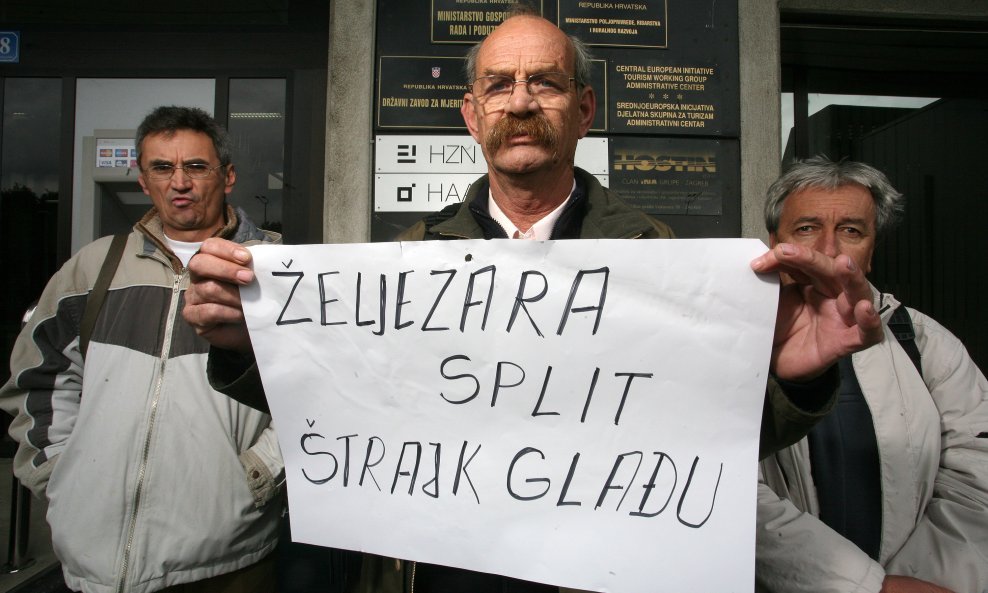 8
REPUBLIKA HRVATSKA
MINISTARSTVO GOSPO
RADA I PODUZ
REPUBLIKA HRVATSKA
MINISTARSTVO POLJOPRIVREDE, RIBARSTVA
I RURALNOG RAZVOJA
REPUBLIKA HRVATSKA
DRŽAVNI ZAVOD ZA MJERI
CENTRAL EUROPEAN INITIATIVE
TOURISM WORKING GROUP
ADMINISTRATIVE CENTER
* * *
SREDNJOEUROPSKA INICIJATIVA
DJELATNA SKUPINA ZA TURIZAM
ADMINISTRATIVNI CENTAR
HZN
HAA
HOSTIN
ČLAN INA GRUPE - ZAGREB
ŽELJEZARA
SPLIT
ŠTRAJK GLAĐU